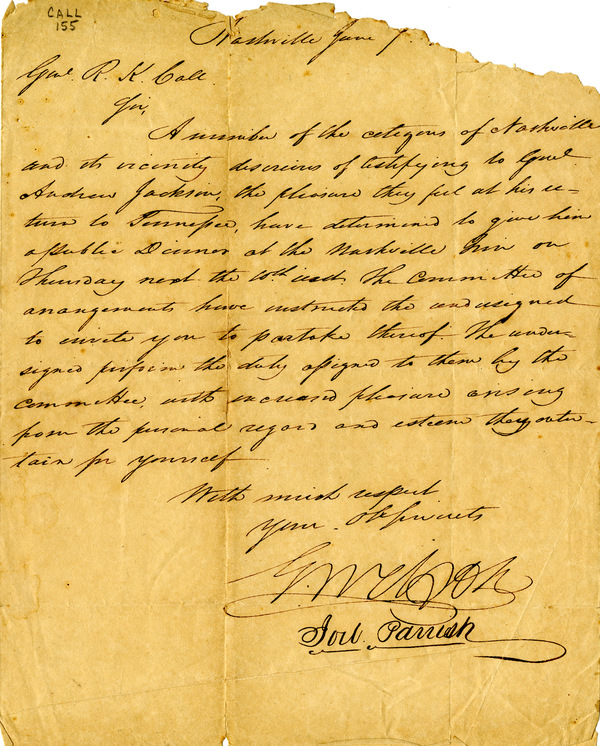 CALL
155
Nashville June 7
Genl. R. K. Call
Sir,
A number of the citizens of Nashville
and its vicinity desireous of testifying to Genl.
Andrew Jackson, the pleasure they feel at his re-
turn to Tennessee, have determined to give him
a public Dinner at the Nashville Inn on
Thursday next the 10th inst. The Committee of
arangements have instructed the undersigned
to invite you to partake thereof. The under-
signed perform the duty assigned to them by the
committee, with increased pleasure arising
from the personal regard and esteem they enter-
tain for yourself
With much respect
your Obt Servts
Joel Parrish